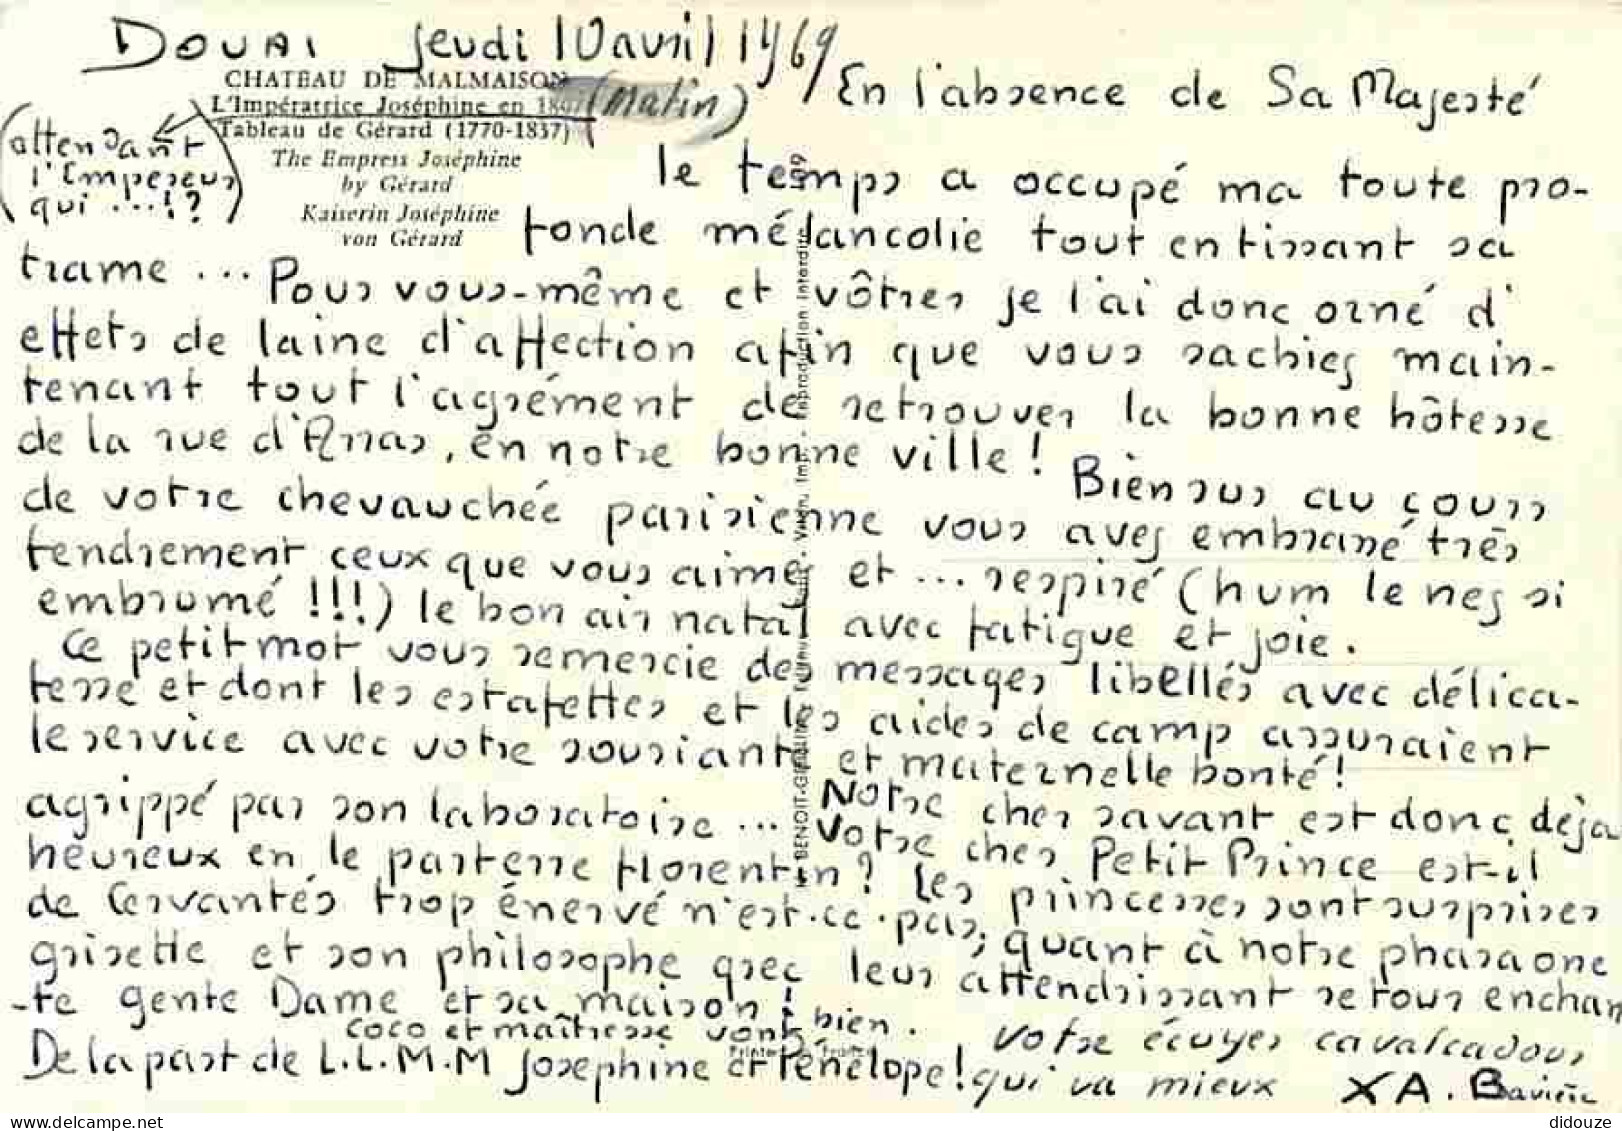 DOUAI Jeudi 10 avril 1969
CHATEAU DE MALMAISON
L'Impératrice Joséphine en 180 (Matin)
Tableau de Gérard (1770-1837)
The Empress Joséphine
by Gérard
Kaiserin Joséphine
von Gérard
(attendant
l'Empereur
qui ...!?)
En l'absence de Sa Majesté
le temps a occupé ma toute pro-
fonde mélancolie tout en tissant sa
trame ... Pour vous-même et vôtres je l'ai donc orné d'
effets de laine d'affection afin que vous sachiez main-
tenant tout l'agrément de retrouver la bonne hôtesse
de la rue d'Arras, en notre bonne ville ! Bien sur au cours
de votre chevauchée parisienne vous avez embrassé très
tendrement ceux que vous aimez et ... respiré (hum le nez si
embrumé !!!) le bon air natal avec fatigue et joie.
Ce petit mot vous remercie des messages libellés avec délica-
tesse et dont les estafettes et les aides de camp assuraient
le service avec votre souriante et maternelle bonté !
Notre cher savant est donc déjà
agrippé par son laboratoire ... Votre cher Petit Prince est-il
heureux en le parterre florentin ? Les princesses sont surprises
de Cervantés trop énervé n'est-ce-pas; quant à notre pharaone
grisette et son philosophe grec leur attendrissant retour enchan
-te gente Dame et sa maison !
coco et maîtresse vont bien.
De la part de L.L.M.M Josephine et Pénélope !
votre écuyer cavalcadour
qui va mieux X A. Bavière
Imp. BENOIT-
Reproduction interdite
Printed
didouze
www.delcampe.net